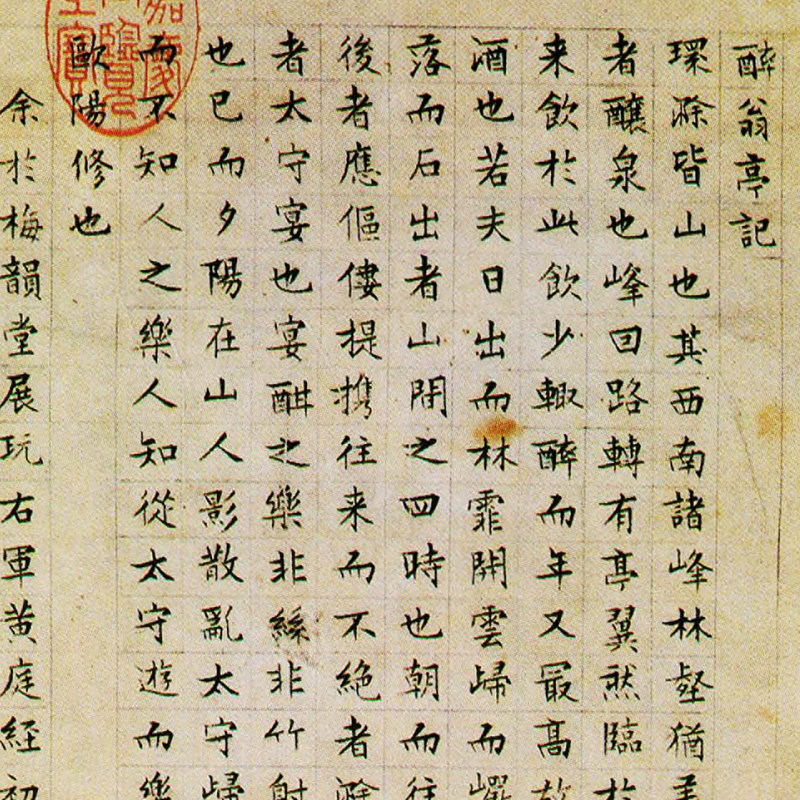 醉翁亭記
環滁皆山也其西南諸峰林壑猶美
者釀泉也峰回路轉有亭翼然臨於
来飲於此飲少輒醉而年又最高故
酒也若夫日出而林霏開雲歸而巖
落而石出者山間之四時也朝而往
後者應傴僂提攜往来而不絶者滁
者太守宴也宴酣之樂非絲非竹射
也已而夕陽在山人影散亂太守歸
而不知人之樂人知從太守遊而樂
歐陽修也
余於梅韻堂展玩右軍黄庭経初
嘉慶
御覽
之寶